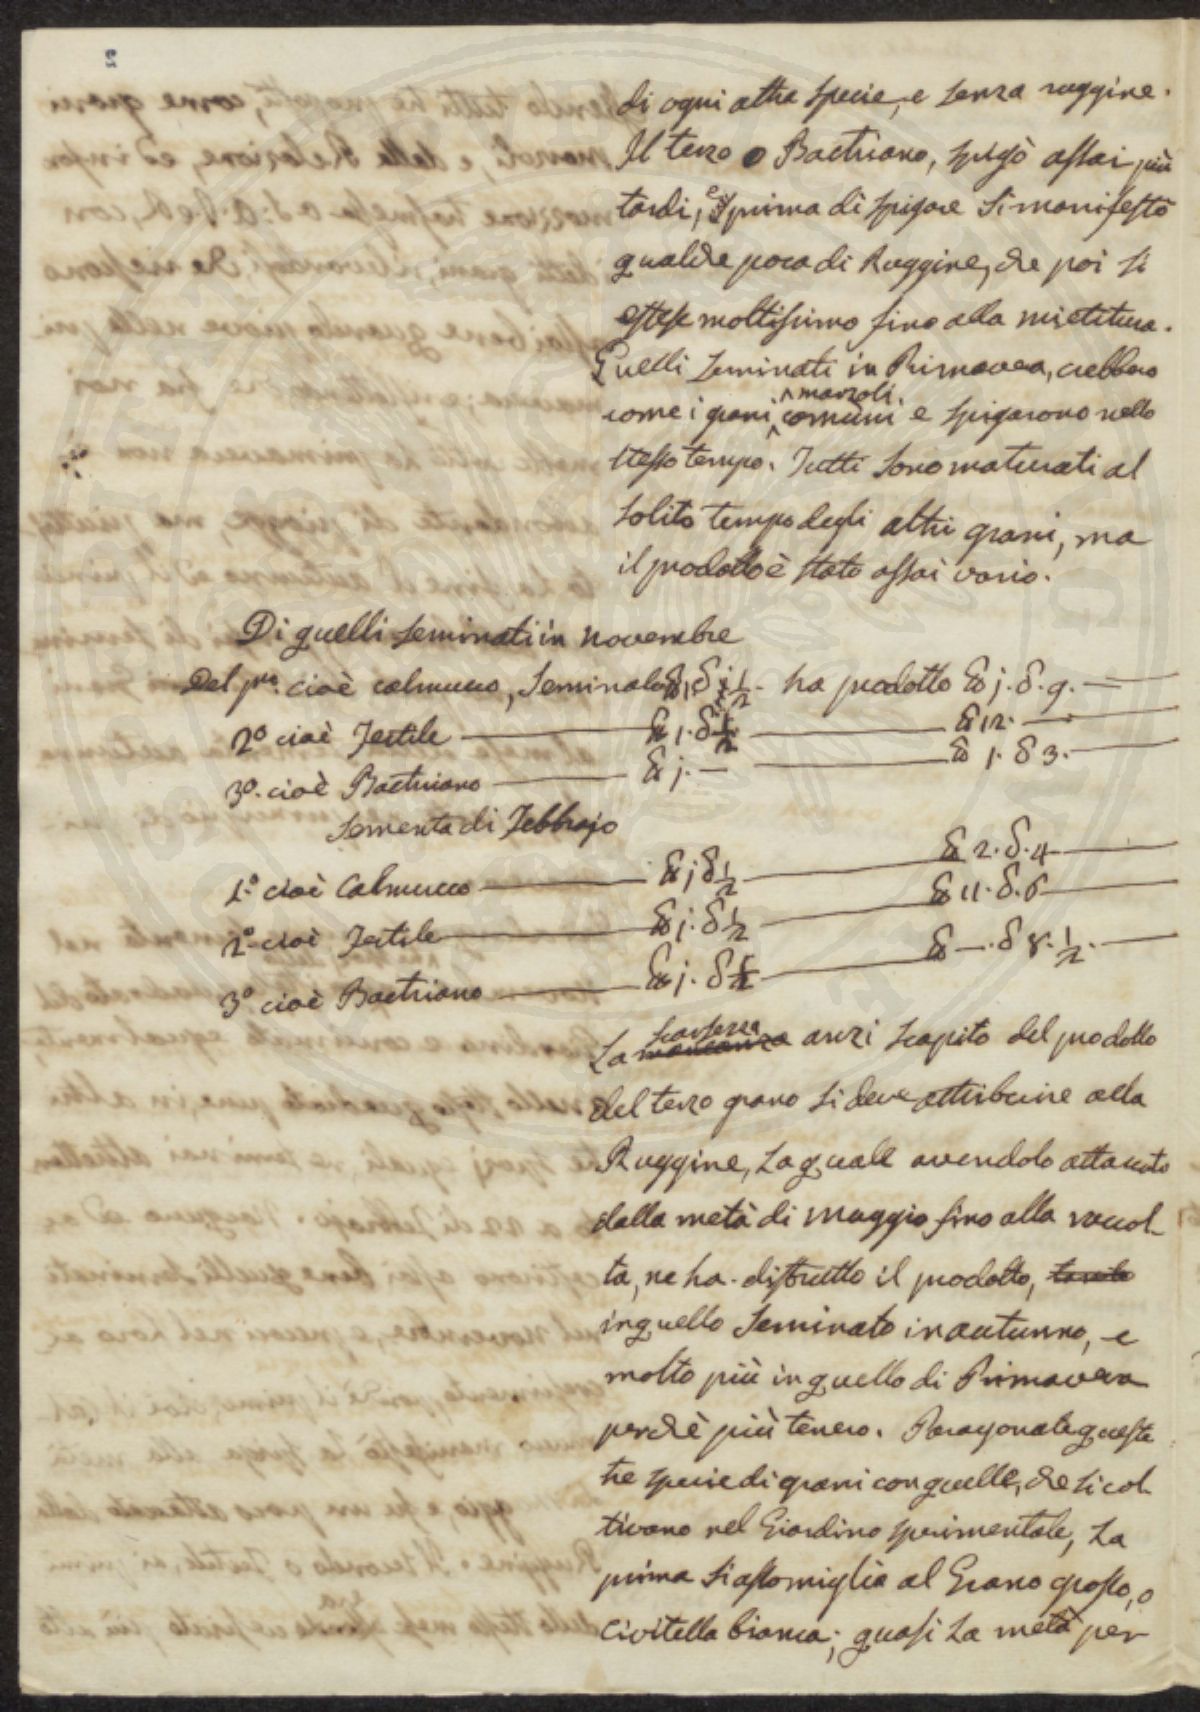 di ogni altra specie, e senza ruggine.
Il terzo o Bactriano, spigò assai più
tardi, e prima di spigare si manifestò
qualche poca di Ruggine, che poi si
estese moltissimo fino alla mietitura.
Quelli seminati in Primavera, crebbero
marzoli.
come i grani comuni e spigarono nello
stesso tempo. Tutti sono maturati al
solito tempo degli altri grani, ma
il prodotto è stato assai vario.
Di quelli seminati in novembre
Del pmo. cioè calmucco, seminato 1. δ 1/2. ha prodotto j. δ. 9.
2o cioè Fertile 1. δ 1/2 12.
3o. cioè Bactriano j. 1. δ 3.
Sementa di Febbrajo
1o. cioè Calmucco j δ 1/2 2. δ. 4
2o. cioè Fertile j. δ 1/2 11. δ. 6
3o cioè Bactriano j. δ δ 8. 1/2.
scarsezza
La mancanza anzi scapito del prodotto
del terzo grano si deve attribuire alla
Ruggine, la quale avendolo attaccato
dalla metà di maggio fino alla raccol-
ta, ne ha distrutto il prodotto, tanto
in quello seminato in autunno, e
molto più in quello di Primavera
perchè più tenero. Paragonate queste
tre specie di grani con quelle, che si col-
tivano nel Giardino sperimentale, La
prima si assomiglia al Grano grosso, o
civitella bianca; quasi la metà per